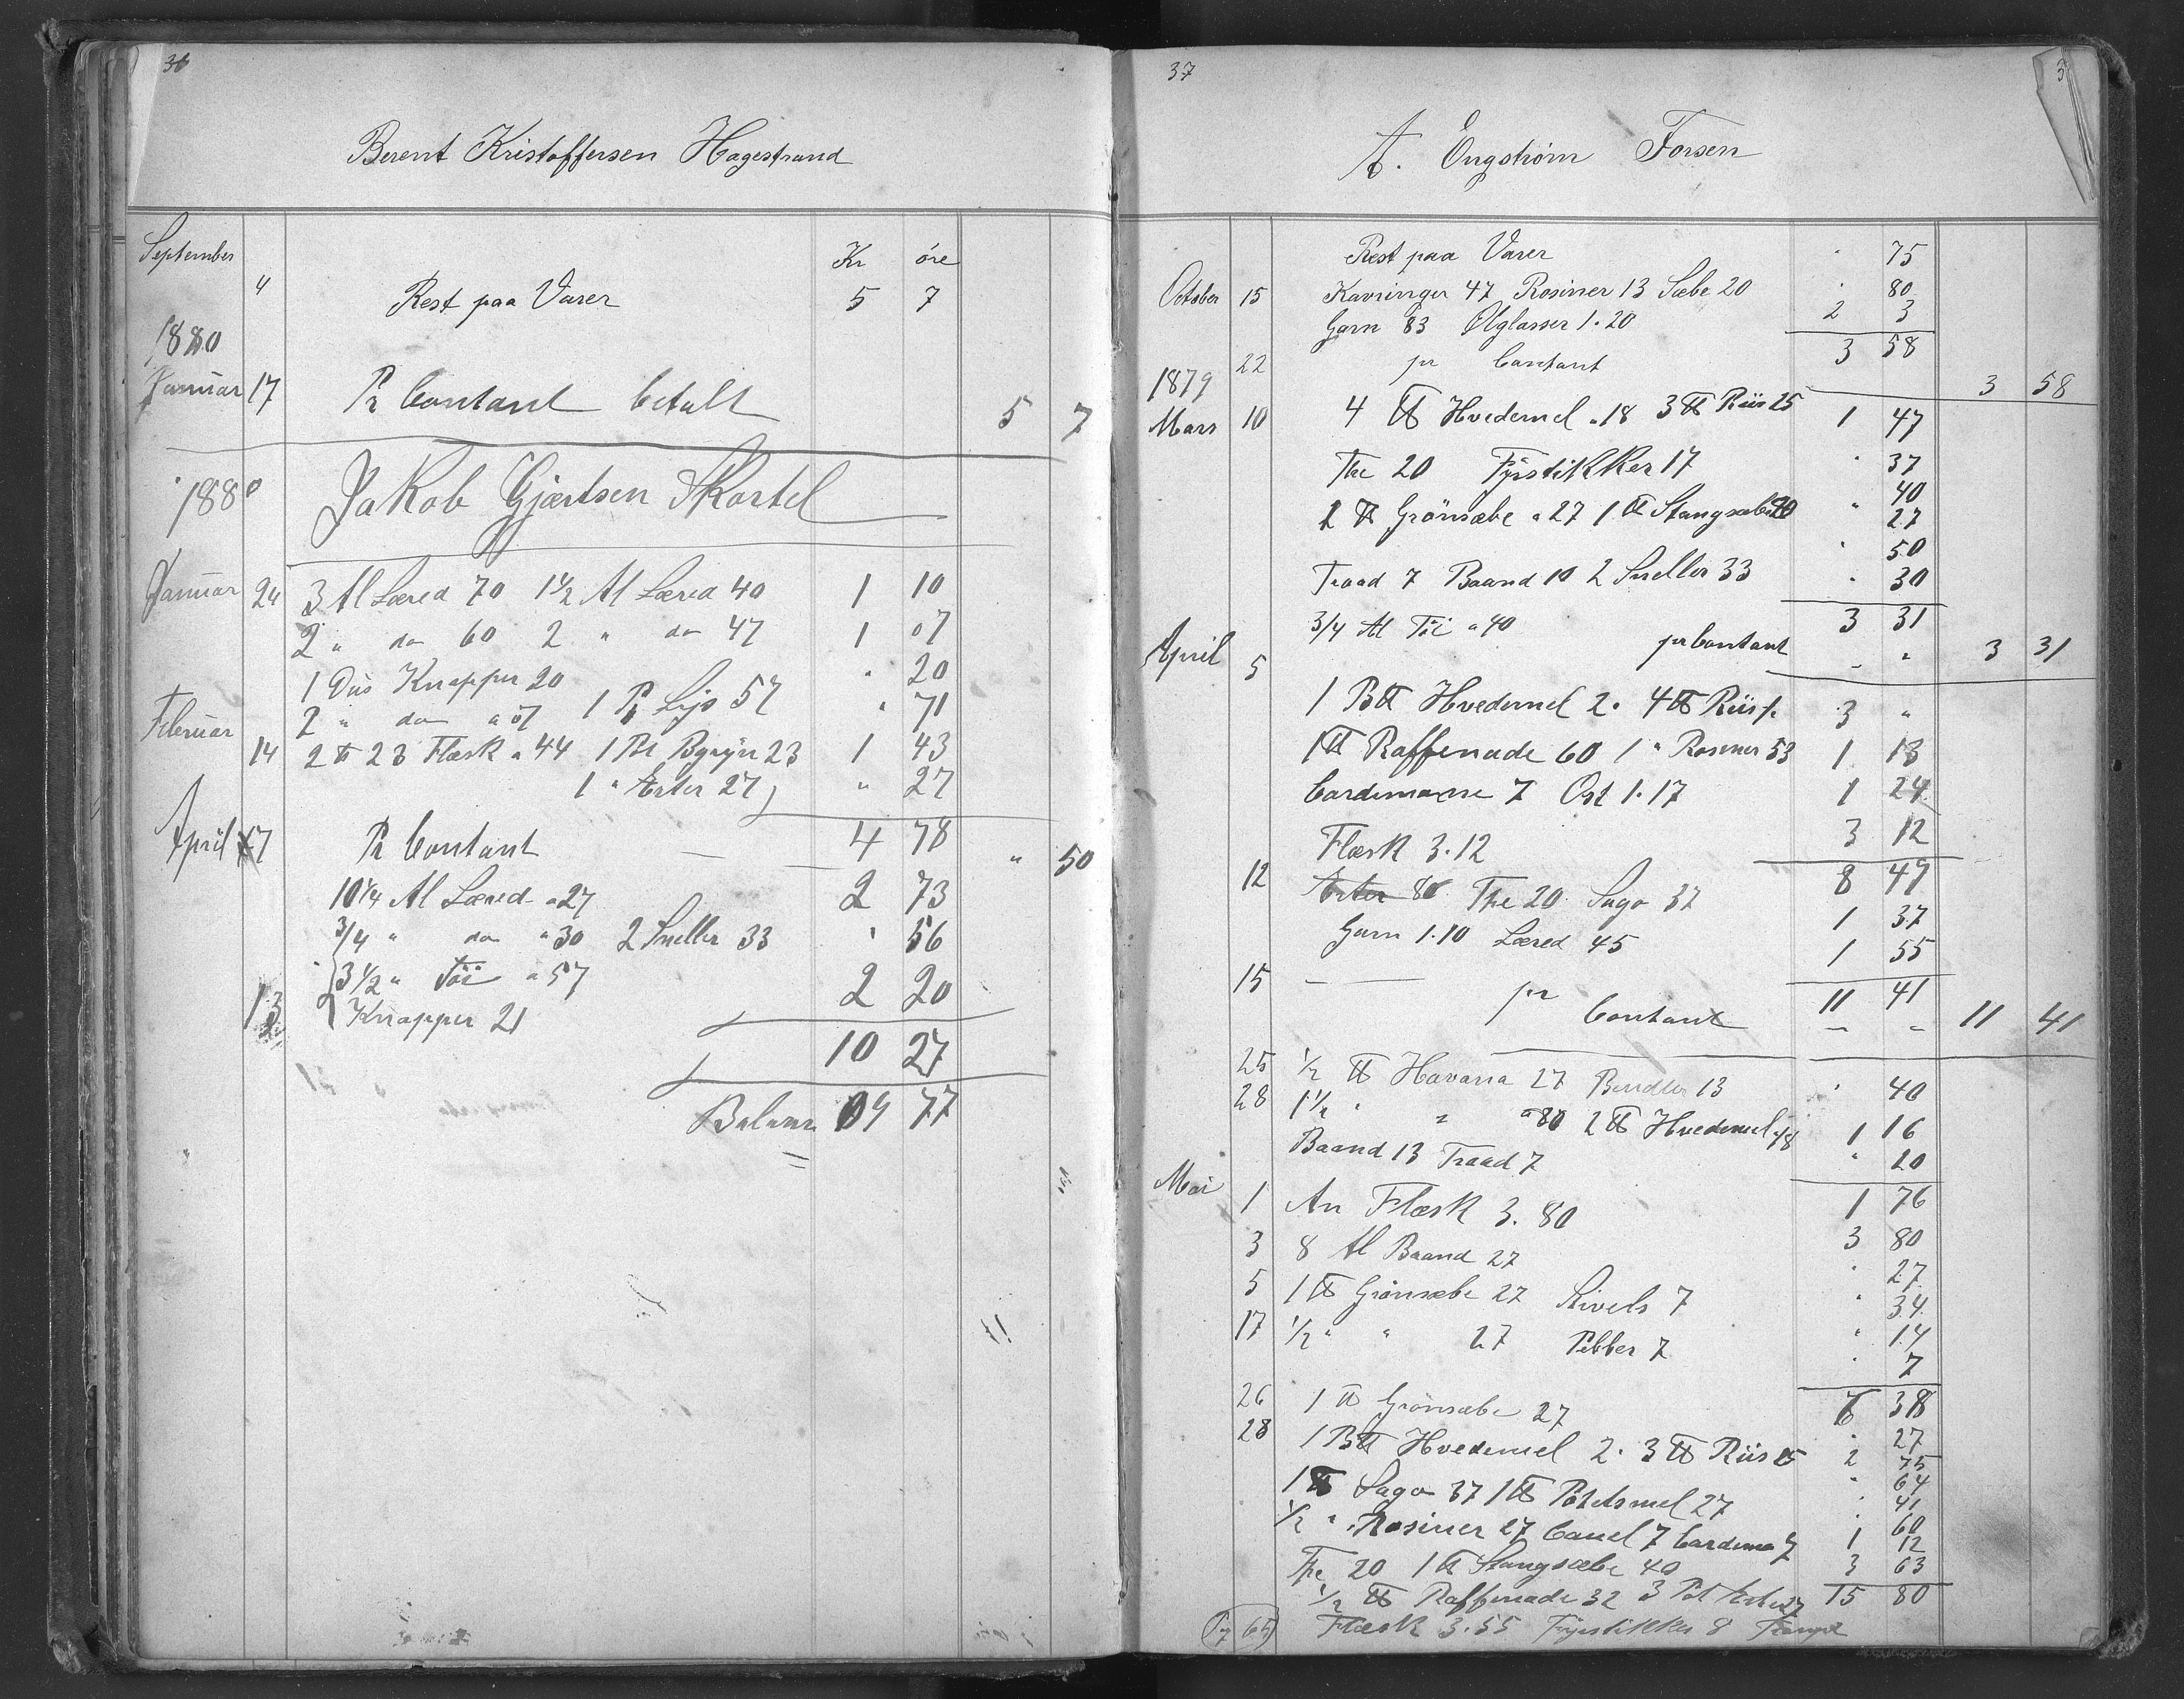 36
Berent Kristoffersen Hagestrand
September Kr öre
4 Rest paa Varer 5 7
1880
Januar 17 Pr Contant betalt 5 7
1880 Jakob Gjærtsen Skartel
Januar 24 3 Al Læred 70 1 1/2 Al Læred 40 1 10
2 " do 60 2 " do 47 1 07
1 Dus Knapper 20 " 20
Februar 2 " do a 07 1 Pk Lys 57 " 71
14 2 ℔ 23 Flæsk a 44 1 Pot Bgryn 23 1 43
1 " Erter 27 " 27
April 7 Pr Contant 4 78 " 50
10 1/4 Al Læred a 27 2 73
3/4 " do a 30 2 Sneller 33 " 56
3 1/2 " Töi a 57 2 20
13 Knapper 21
10 27
Balance 9 77
37
A. Engström Forsen
Rest paa Varer " 75
October 15 Kavringer 47 Rosiner 13 Sæbe 20 " 80
Garn 83 Ølglasser 1.20 2 3
22 pr Contant 3 58
1879 3 58
Mars 10 4 ℔ Hvedemel a 18 3 ℔ Riis 25 1 47
The 20 Fyrstikker 17 " 37
" 40
1 ℔ Grönsæbe a 27 1 ℔ Stangsæbe 40 " 27
" 50
Traad 7 Baand 10 2 Sneller 33 " 30
3/4 Al Töi a 40 3 31
April 5 pr Contant 3 31
1 B℔ Hvedemel 2. 4 ℔ Riis 1. 3 "
1 ℔ Raffenade 60 1 " Rosiner 53 1 13
Cardemome 7 Ost 1.17 1 24
Flæsk 3.12 3 12
8 49
12 Erter 80 The 20 Sago 37 1 37
Garn 1.10 Læred 45 1 55
15 pr Contant 11 41 11 41
25 1/2 ℔ Havana 27 Bendler 13 " 40
28 1 1/2 " " a 80 2 ℔ Hvedemel a 18 1 16
Baand 13 Traad 7 " 20
Mai 1 An Flæsk 3.80 1 76
3 80
3 8 Al Baand 27 " 27
5 1 ℔ Grönsæbe 27 Stivels 7 " 34
17 1/2 " " 27 Pebber 7 " 14
" 7
26 1 ℔ Grönsæbe 27 6 38
" 27
28 1 B℔ Hvedemel 2. 3 ℔ Riis 25 2 75
1 ℔ Sago 37 1 ℔ Potetsmel 27 " 64
1/2 " Rosiner 27 Canel 7 Cardemo 7 " 41
The 20 1 ℔ Stangsæbe 40 " 60
1/2 ℔ Raffenade 32 3 Pot Erter 27 1 12
3 63
15 80
Pg 65 Flæsk 3.55 Fyrstikker 8